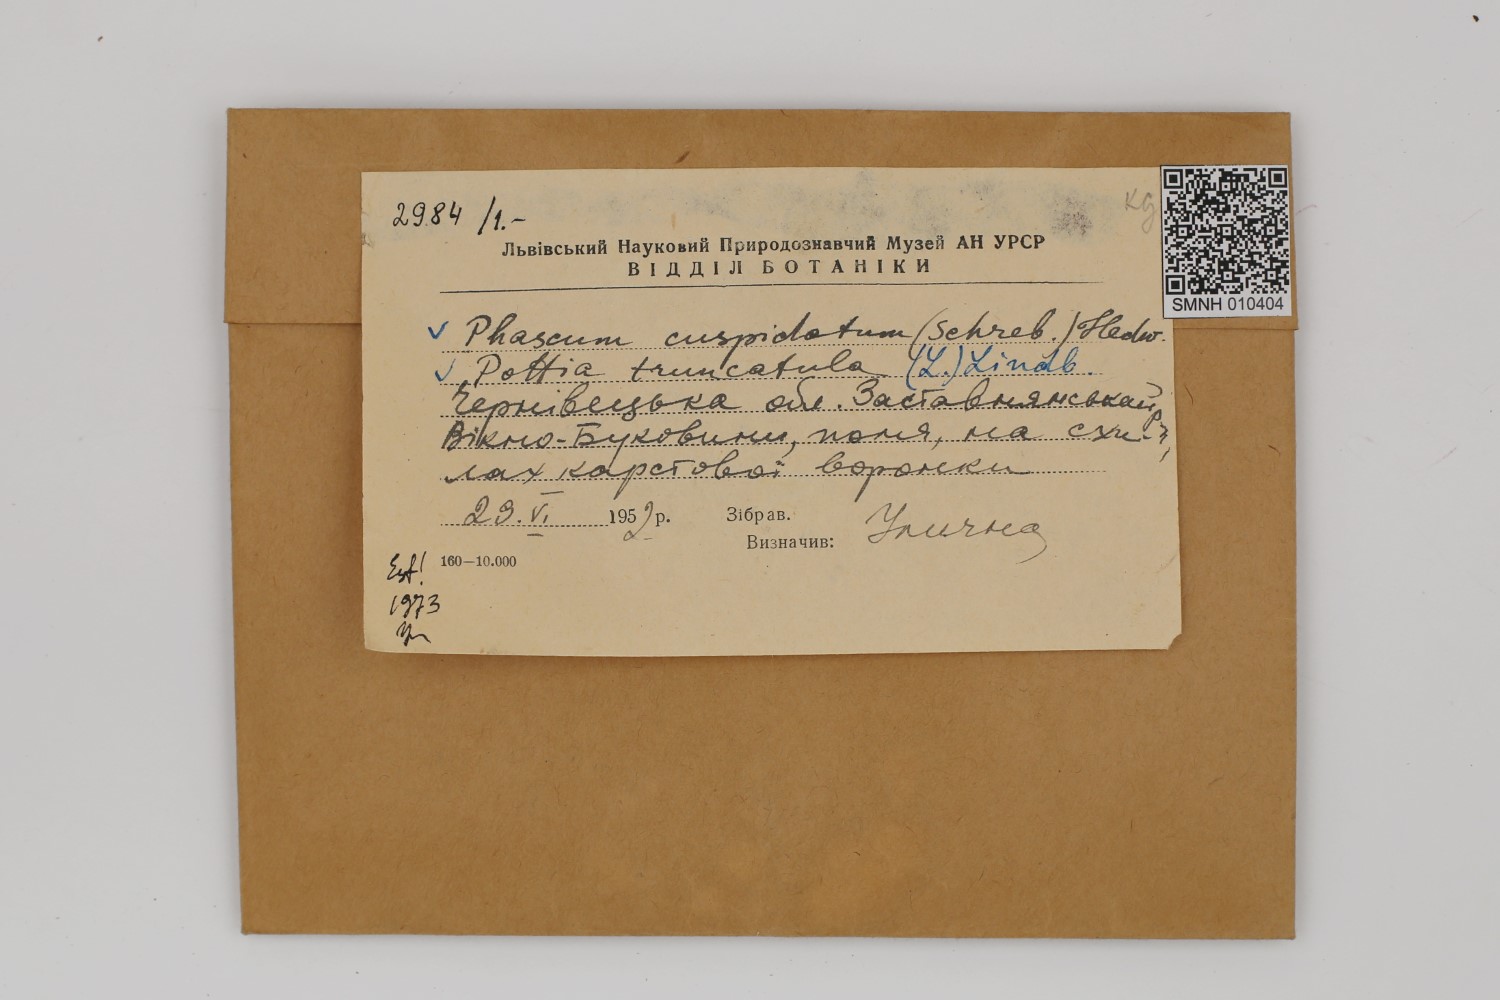 2984 /1.-
кд
Львівський Науковий Природознавчий Музей АН УРСР
ВІДДІЛ БОТАНІКИ
SMNH 010404
✓ Phascum cuspidatum (Schreb.) Hedw.
✓ Pottia truncatula (L.) Lindb.
Чернівецька обл. Заставнянський р-н,
Вікно-Буковини, поля, на схи-
лах карстової воронки
29.VI 1952 р.
Зібрав.
Визначив:
Улична
160—10.000
1973